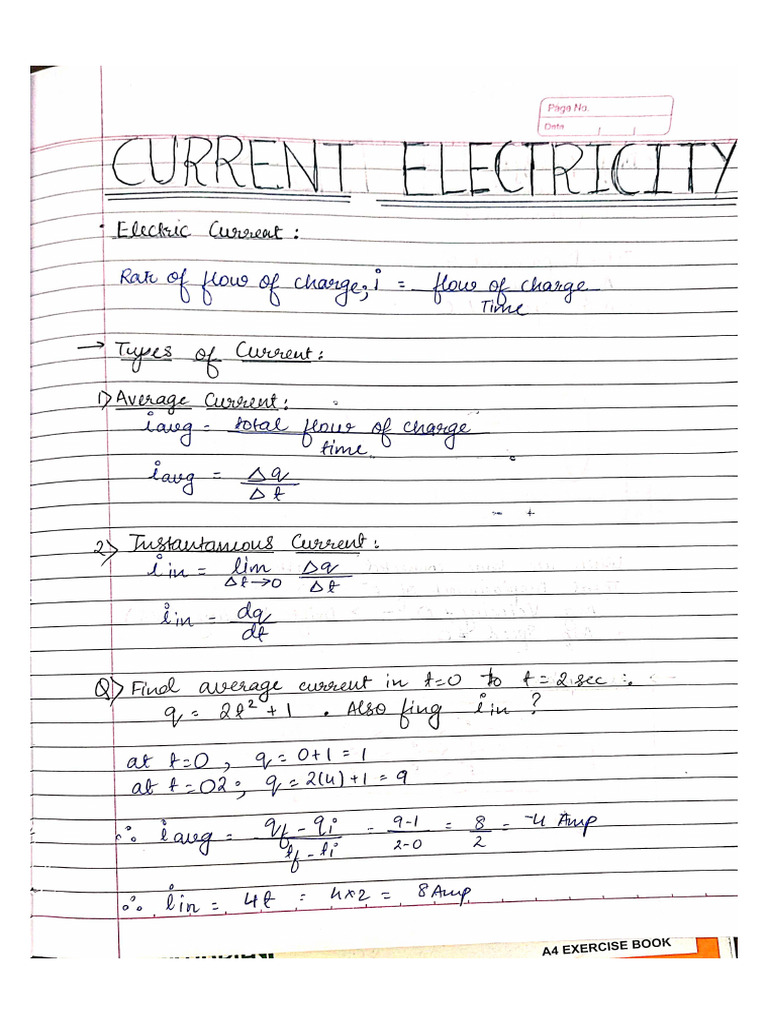 Page No.
Date
CURRENT ELECTRICITY
• Electric Current:
Rate of flow of charge; i = flow of charge
Time
→ Types of Current:
1) Average Current:
i avg = total flow of charge
time
i avg = Δq
Δt
- +
2) Instantaneous Current:
i in = lim Δq
Δt→0 Δt
i in = dq
dt
Q) Find average current in t=0 to t=2sec :.
q = 2t² + 1 . Also fing i in ?
at t=0 , q = 0+1 = 1
at t=02; q = 2(4)+1 = 9
∴ i avg = qf - qi = 9-1 = 8 = 4 Amp
tf - ti 2-0 2
∴ i in = 4t = 4×2 = 8 Amp
A4 EXERCISE BOOK